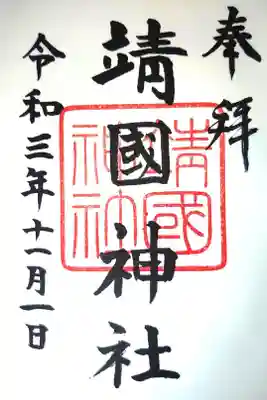 奉拝
靖國神社
靖國
神社
令和三年十一月一日